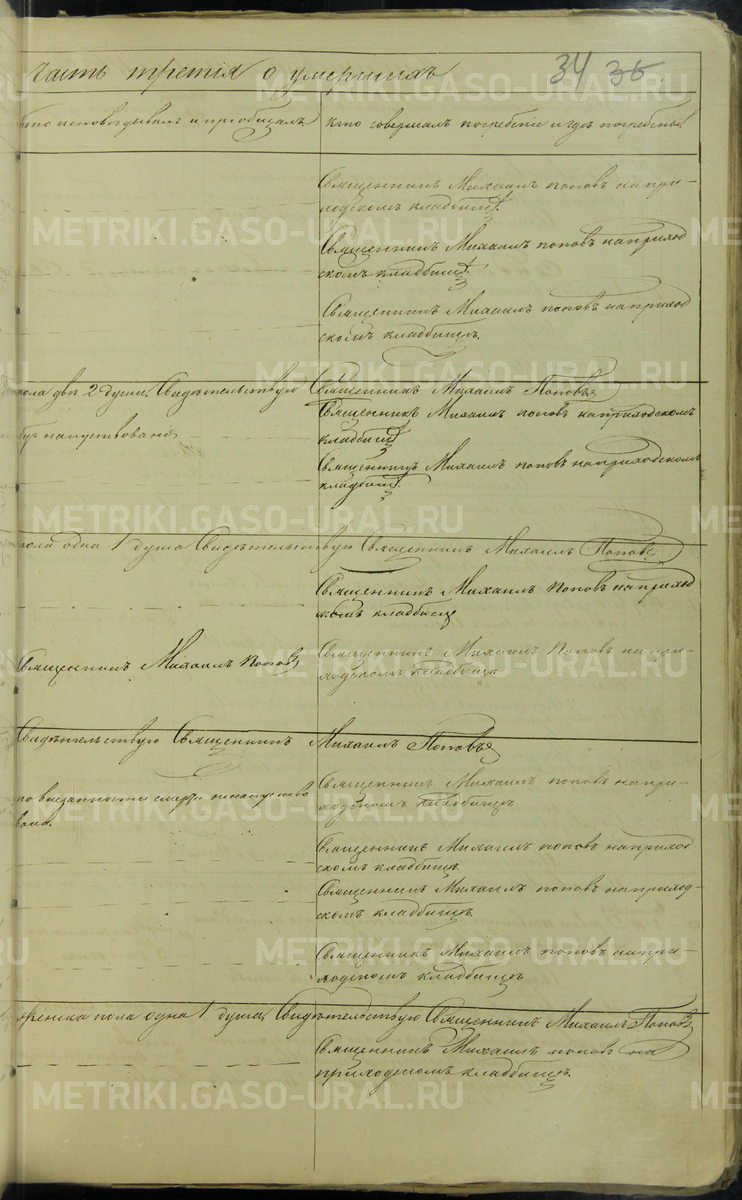 Часть третiя о умершихъ
34 35
кто исповѣдывалъ и прiобщалъ
кто совершалъ погребенiе и гдѣ погребены.
Священникъ Михаилъ Поповъ на при-
ходскомъ кладбищѣ.
Священникъ Михаилъ Поповъ на приход
скомъ кладбищѣ.
Священникъ Михаилъ Поповъ на приход
скомъ кладбищѣ.
пола двѣ 2 души. Свидѣтельствую Священникъ Михаилъ Поповъ
Священникъ Михаилъ Поповъ на приходскомъ
кладбищѣ
напутствована
Священникъ Михаилъ Поповъ на приходскомъ
кладбищѣ.
пола одна 1 душа Свидѣтельствую Священникъ Михаилъ Поповъ
Священникъ Михаилъ Поповъ на приход
скомъ кладбищѣ
Священникъ Михаилъ Поповъ
Священникъ Михаилъ Поповъ на при-
ходскомъ кладбищѣ
Свидѣтельствую Священникъ Михаилъ Поповъ
по внезапности смерти не напутство
вана.
Священникъ Михаилъ Поповъ на при-
ходскомъ кладбищѣ
Священникъ Михаилъ Поповъ на приход
скомъ кладбищѣ.
Священникъ Михаилъ Поповъ на приход-
скомъ кладбищѣ.
Священникъ Михаилъ Поповъ на при-
ходскомъ кладбищѣ
женска пола одна 1 душа, Свидѣтельствую Священникъ Михаилъ Поповъ
Священникъ Михаилъ Поповъ на
приходскомъ кладбищѣ.
METRIKI.GASO-URAL.RU